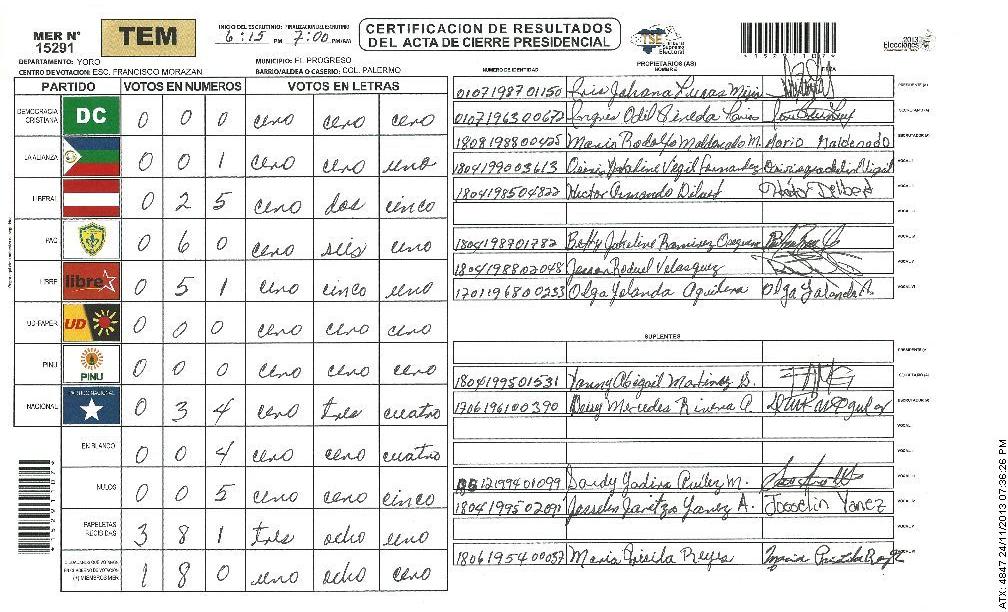 MER N° 15291
TEM
INICIO DEL ESCRUTINIO: 6:15 PM FINALIZACION DEL ESCRUTINIO 7:00 PM/AM
CERTIFICACION DE RESULTADOS DEL ACTA DE CIERRE PRESIDENCIAL
TSE Tribunal Supremo Electoral
2013 Elecciones
DEPARTAMENTO: YORO
MUNICIPIO: EL PROGRESO
CENTRO DE VOTACION: ESC. FRANCISCO MORAZAN
BARRIO/ALDEA O CASERIO: COL. PALERMO
PARTIDO VOTOS EN NUMEROS VOTOS EN LETRAS
DEMOCRACIA CRISTIANA DC 0 0 0 cero cero cero
LA ALIANZA 0 0 1 cero cero uno
LIBERAL 0 2 5 cero dos cinco
PAC 0 6 0 cero seis cero
LIBRE libre 0 5 1 cero cinco uno
UD-FAPER UD 0 0 0 cero cero cero
PINU PINU 0 0 0 cero cero cero
NACIONAL PARTIDO NACIONAL 0 3 4 cero tres cuatro
EN BLANCO 0 0 4 cero cero cuatro
NULOS 0 0 5 cero cero cinco
PAPELETAS RECIBIDAS 3 8 1 tres ocho uno
1 8 0 uno ocho cero
PROPIETARIOS (AS)
NUMERO DE IDENTIDAD NOMBRE FIRMA
0107198701150 Iris Johana Lucas Mejia PRESIDENTE (A)
SECRETARIO (A)
1808198800425 Mario Rodolfo Maldonado M. Mario Maldonado ESCRUTADOR (A)
1804199003613 VOCAL I
1804198504822 Hector Armando VOCAL II
VOCAL III
1804198701782 Betty Jakeline Ramirez VOCAL IV
1804198802048 Velasquez VOCAL V
1701196800233 Olga Yolanda Aguilera Olga Yolanda A. VOCAL VI
SUPLENTES
PRESIDENTE (A)
1804199501531 Abigail Martinez S. SECRETARIO (A)
1706196100390 Deisy Mercedes Rivera A. ESCRUTADOR (A)
VOCAL I
VOCAL II
1804199502091 Yanez A. Josselin Yanez
1806195400037 Maria Reyes
ATX: 4847 24/11/2013 07:36:26 PM